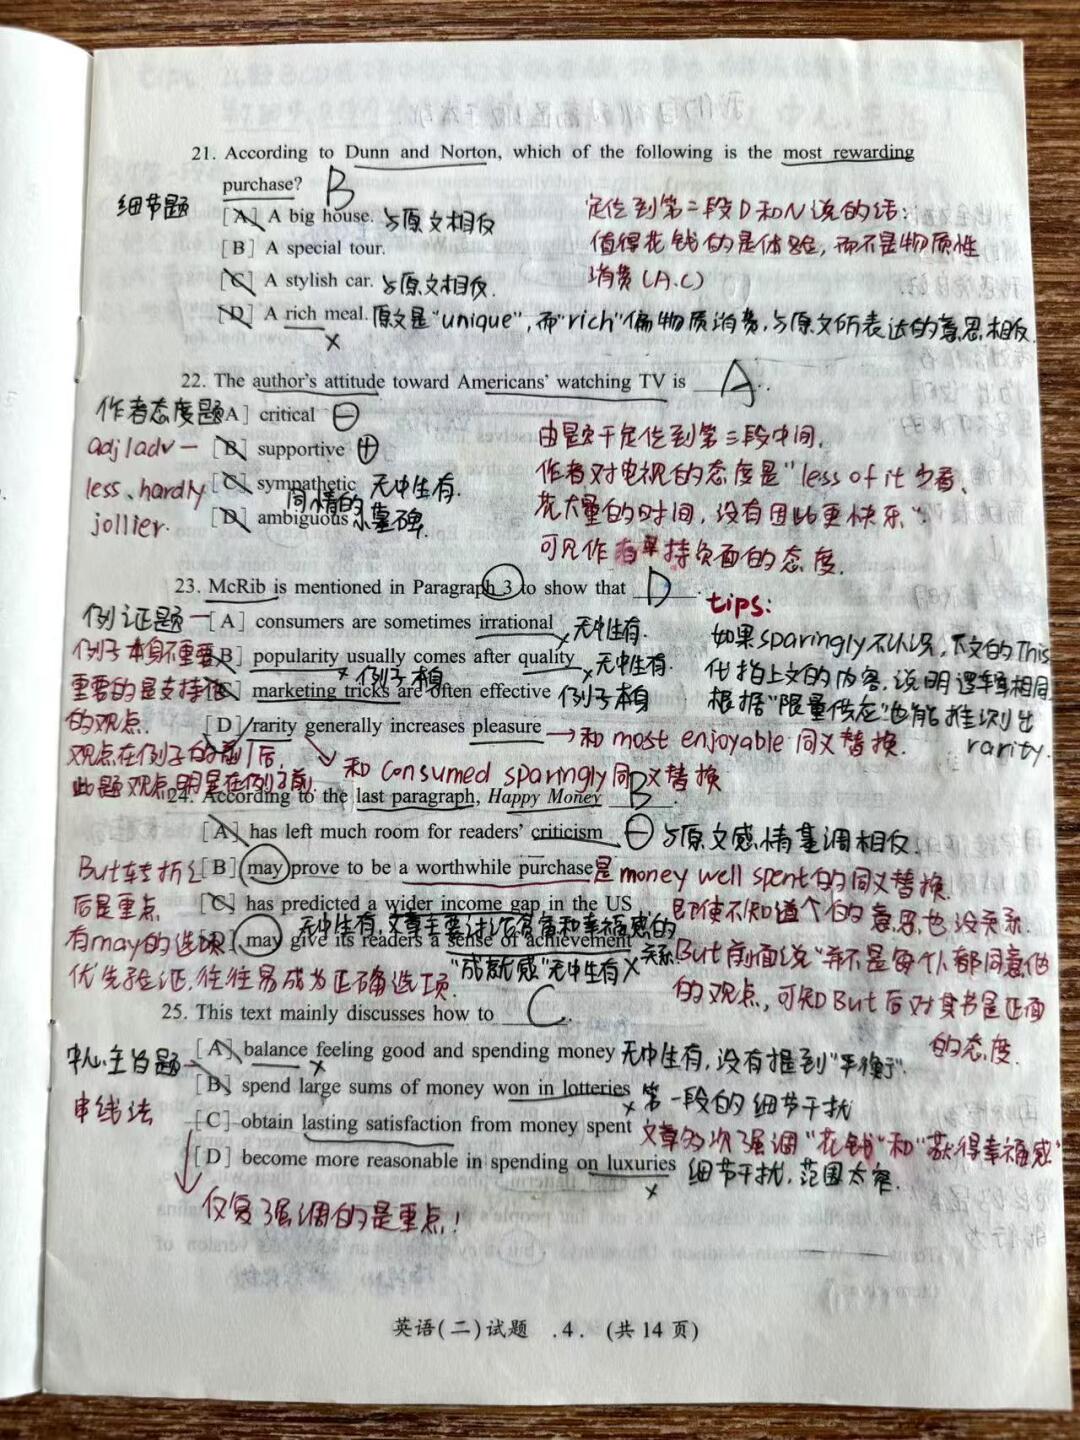 21. According to Dunn and Norton, which of the following is the most rewarding
purchase? B
细节题
[A] A big house. 与原文相反
[B] A special tour.
[C] A stylish car. 与原文相反.
[D] A rich meal. 原文是"unique",而"rich"偏物质消费,与原文所表达的意思相反.
定位到第二段D和N说的话:
值得花钱的是体验,而不是物质性
消费(A.C)
22. The author's attitude toward Americans' watching TV is A.
作者态度题
[A] critical ⊖
adj/adv — [B] supportive ⊕
less、hardly [C] sympathetic 无中生有.
同情的
jollier. [D] ambiguous 墓碑.
由题干定位到第三段中间,
作者对电视的态度是"less of it
花大量的时间,没有因此更快乐"
可见作者是持负面的态度.
23. McRib is mentioned in Paragraph 3 to show that D.
例证题 — [A] consumers are sometimes irrational 无中生有.
例子本身不重要 [B] popularity usually comes after quality 无中生有.
例子本身
重要的是支持他 [C] marketing tricks are often effective 例子本身
的观点. [D] rarity generally increases pleasure → 和most enjoyable同义替换.
观点在例子的前/后, 和consumed sparingly同义替换
此题观点明显在例子前.
tips:
如果sparingly不认识,下文的This
代指上文的内容,说明逻辑相同
根据"限量供应"也能推测出
rarity.
24. According to the last paragraph, Happy Money B.
[A] has left much room for readers' criticism ⊖ 与原文感情基调相反.
But转折之 [B] may prove to be a worthwhile purchase 是money well spent的同义替换.
后是重点 [C] has predicted a wider income gap in the US
无中生有,文章主要讨论 和幸福感的
关系
有may的选项 [D] may give its readers a sense of achievement
优先验证,往往易成为正确选项. "成就感"无中生有 ×
即使不知道个的意思也没关系.
But前面说"并不是每个人都同意他
的观点,可知But后对其书是正面
的态度.
25. This text mainly discusses how to C.
中心主旨题 [A] balance feeling good and spending money 无中生有,没有提到"平衡".
[B] spend large sums of money won in lotteries 第一段的细节干扰
串线法 [C] obtain lasting satisfaction from money spent 文章多次强调"花钱"和"获得幸福感"
[D] become more reasonable in spending on luxuries 细节干扰,范围太窄.
反复强调的是重点!
英语(二)试题 .4. (共14页)